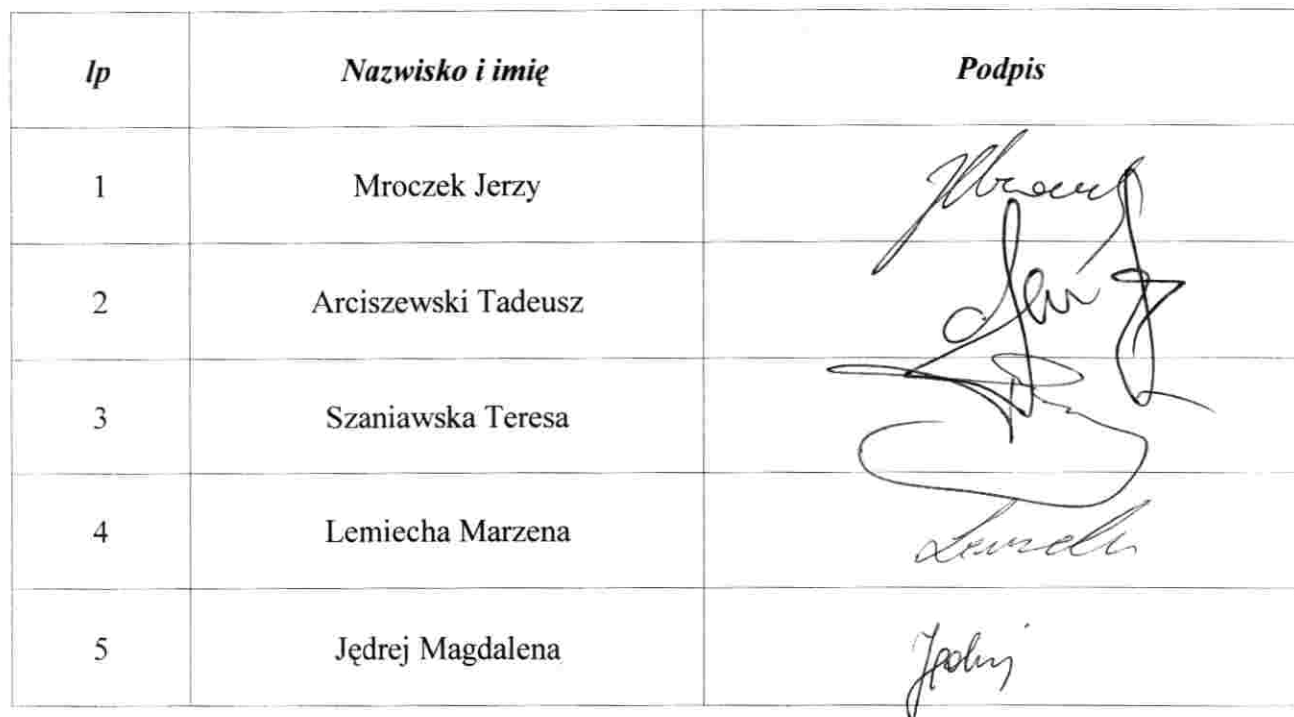 lp Nazwisko i imię Podpis
1 Mroczek Jerzy
2 Arciszewski Tadeusz
3 Szaniawska Teresa
4 Lemiecha Marzena
5 Jędrej Magdalena